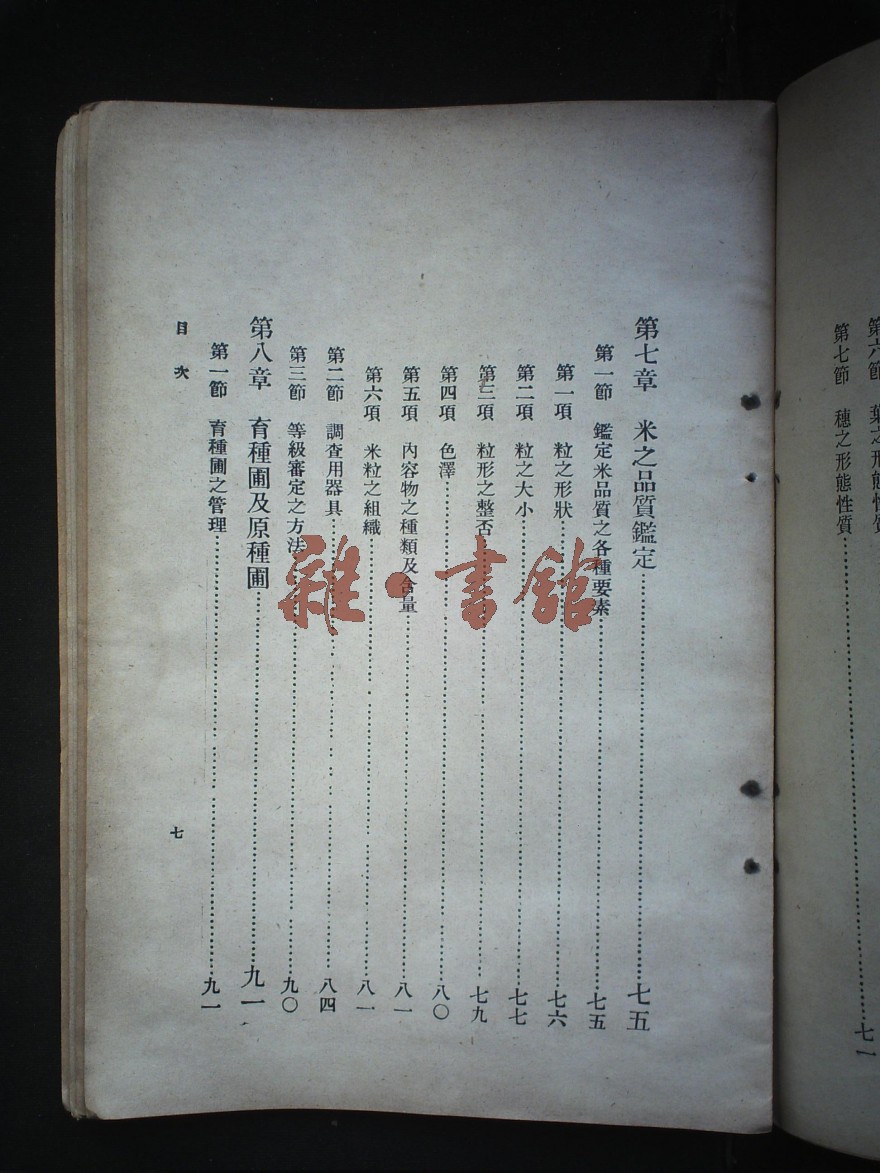 第六節 葉之形態性質
第七節 穗之形態性質……七一
第七章 米之品質鑑定……七五
第一節 鑑定米品質之各種要素……七五
第一項 粒之形狀……七六
第二項 粒之大小……七七
第三項 粒形之整否……七九
第四項 色澤……八〇
第五項 內容物之種類及含量……八一
第六項 米粒之組織……八一
第二節 調查用器具……八四
第三節 等級審定之方法……九〇
第八章 育種圃及原種圃……九一
第一節 育種圃之管理……九一
目次
七
雜·書館